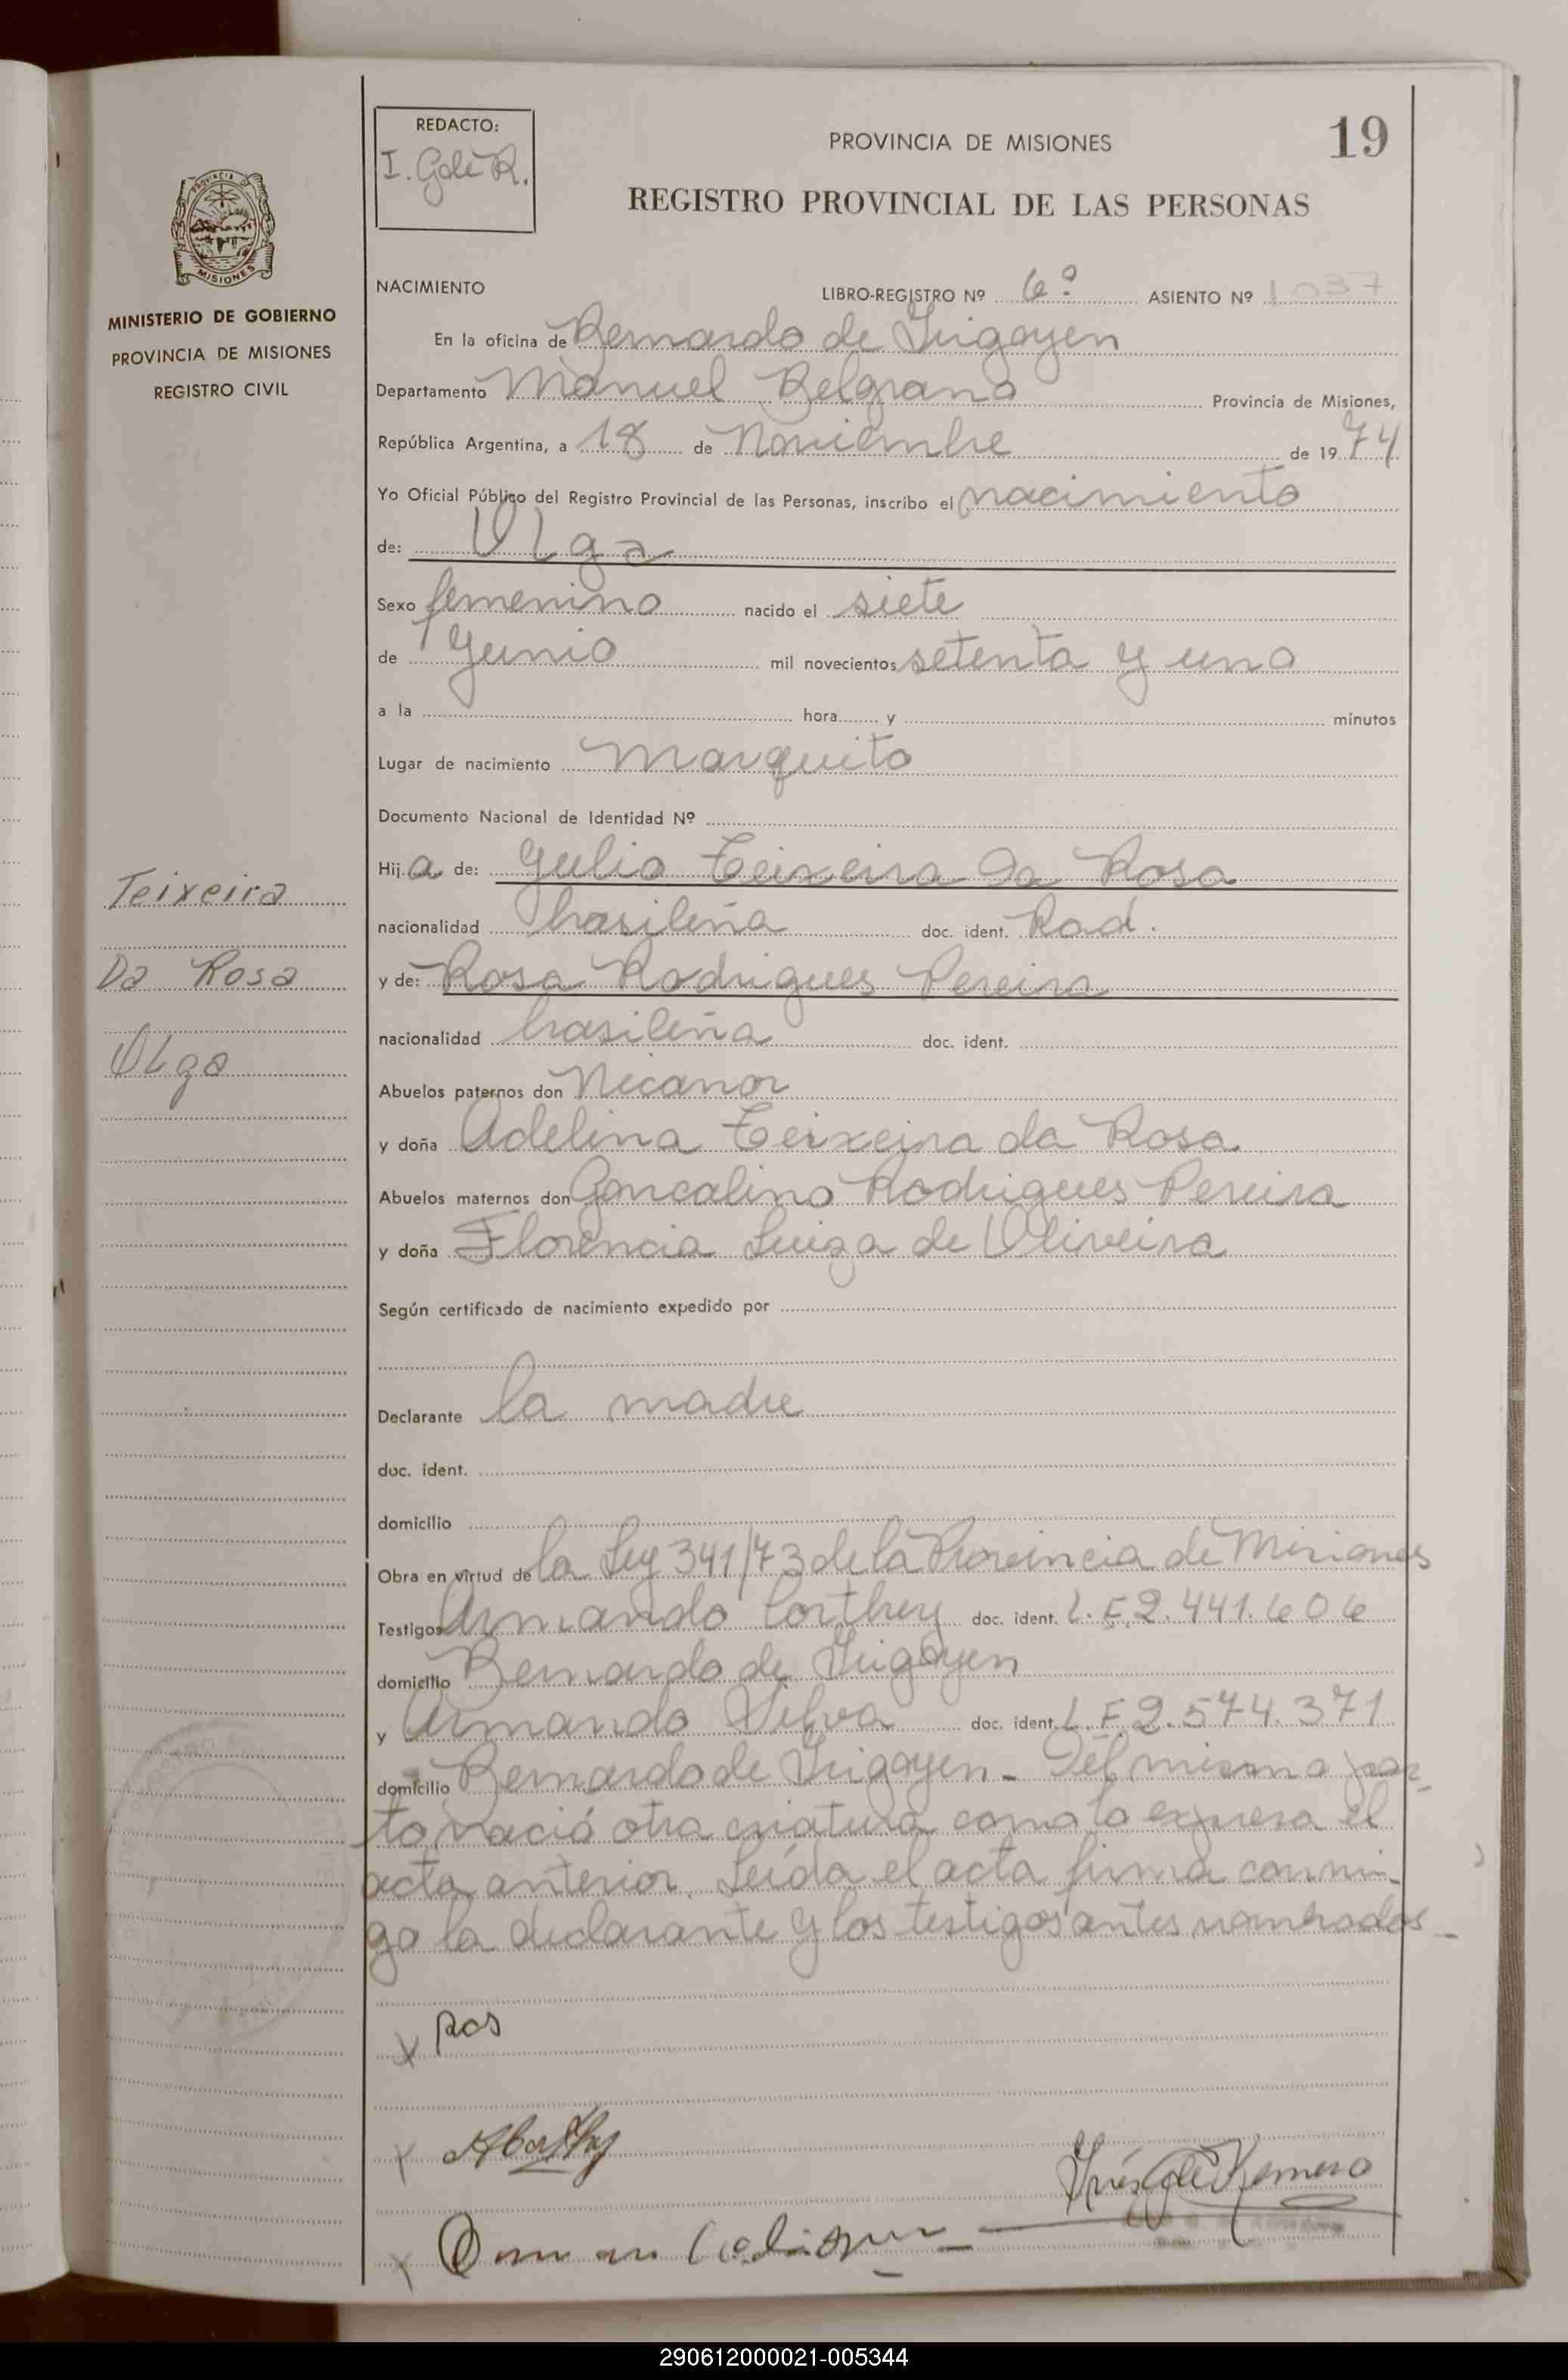 19
REDACTO:
PROVINCIA DE MISIONES
REGISTRO PROVINCIAL DE LAS PERSONAS
MISIONES
MINISTERIO DE GOBIERNO
PROVINCIA DE MISIONES
REGISTRO CIVIL
NACIMIENTO LIBRO-REGISTRO Nº 6º ASIENTO Nº 1037
En la oficina de Bernardo de Irigoyen
Departamento Manuel Belgrano Provincia de Misiones,
República Argentina, a 18 de Noviembre de 1974
Yo Oficial Público del Registro Provincial de las Personas, inscribo el nacimiento
de: Olga
Sexo femenino nacido el siete
de Junio mil novecientos setenta y uno
a la hora y minutos
Lugar de nacimiento Marquito
Documento Nacional de Identidad Nº
Hija de: Julio Teixeira Da Rosa
nacionalidad brasileña doc. ident. Rad.
y de: Rosa Rodrigues Pereira
nacionalidad brasileña doc. ident.
Abuelos paternos don Nicanor
y doña Adelina Teixeira da Rosa
Abuelos maternos don Goncalino Rodrigues Pereira
y doña Florencia Luiza de Oliveira
Según certificado de nacimiento expedido por
Declarante la madre
doc. ident.
domicilio
Obra en virtud de la Ley 341/73 de la Provincia de Misiones
Testigos Armando Corthey doc. ident. L.E 2.441.606
domicilio Bernardo de Irigoyen
y Armando Silva doc. ident. L.E 2.574.371
domicilio Bernardo de Irigoyen - Del mismo par-
to nació otra criatura como lo expresa el
acta anterior. Leída el acta firma conmi-
go la declarante y los testigos antes nombrados -
Teixeira
Da Rosa
Olga
290612000021-005344